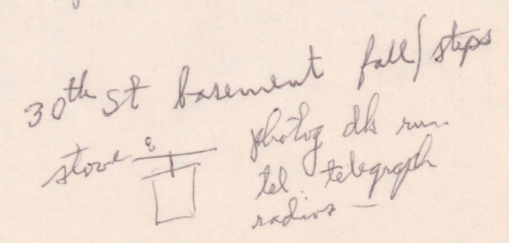 30th St basement fall/steps
stove photog dk rm.
tel. telegraph
radios —